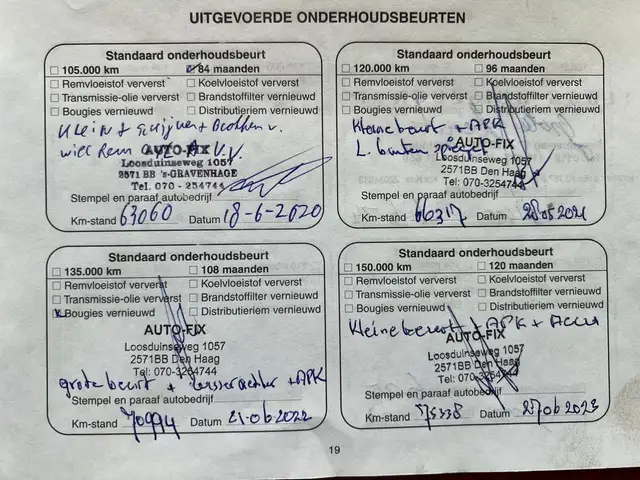 UITGEVOERDE ONDERHOUDSBEURTEN
Standaard onderhoudsbeurt
105.000 km 84 maanden
Remvloeistof ververst Koelvloeistof ververst
Transmissie-olie ververst Brandstoffilter vernieuwd
Bougies vernieuwd Distributieriem vernieuwd
Klein + +
wiel Rem
AUTO-FIX
Loosduinseweg 1057
2571 BB 's-GRAVENHAGE
Tel. 070 - 254744
Stempel en paraaf autobedrijf
Km-stand 63060 Datum 18-6-2020
Standaard onderhoudsbeurt
120.000 km 96 maanden
Remvloeistof ververst Koelvloeistof ververst
Transmissie-olie ververst Brandstoffilter vernieuwd
Bougies vernieuwd Distributieriem vernieuwd
Kleine beurt + APK
L. banten
AUTO-FIX
Loosduinseweg 1057
2571BB Den Haag
Tel: 070-3254744
Stempel en paraaf autobedrijf
Km-stand 66317 Datum 2021
Standaard onderhoudsbeurt
135.000 km 108 maanden
Remvloeistof ververst Koelvloeistof ververst
Transmissie-olie ververst Brandstoffilter vernieuwd
Bougies vernieuwd Distributieriem vernieuwd
AUTO-FIX
Loosduinseweg 1057
2571BB Den Haag
Tel: 070-3254744
grote beurt + + APK
Stempel en paraaf autobedrijf
Km-stand 70994 Datum 21-06-2022
Standaard onderhoudsbeurt
150.000 km 120 maanden
Remvloeistof ververst Koelvloeistof ververst
Transmissie-olie ververst Brandstoffilter vernieuwd
Bougies vernieuwd Distributieriem vernieuwd
Kleine beurt + APK + Accu
AUTO-FIX
Loosduinseweg 1057
2571BB Den Haag
Tel: 070-3254744
Stempel en paraaf autobedrijf
Km-stand 75338 Datum 27062023
19